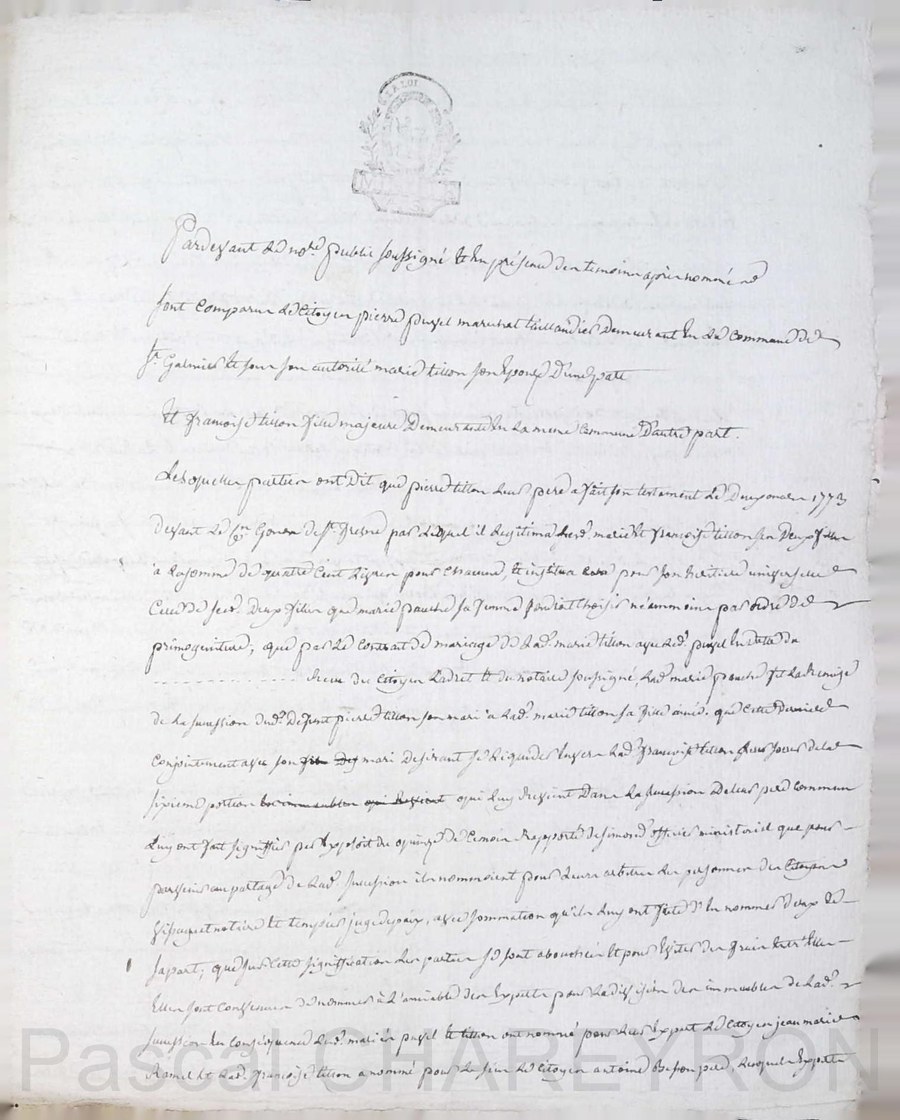 LA LOI
Pardevant le no.re public soussigné et en présence des temoins après nommé
sont comparus le Citoyen pierre puzel marechal taillandier demeurant en la Commune de
St. Galmier et sous son autorité marie tillon son epouse D'une part
Et françoise tillon fille majeure Demeurante en la meme Commune D'autre part.
Lesquelles parties ont Dit que pierre tillon leur pere a fait son testament le Deux 1773
devant le par lequel il legitima marie et françoise tillon ses Deux filles
a la somme de quatre Cent livres pour Chacune, et institua pour son heritiere universelle
Celle de ses d. Deux filles que marie sa femme voudroit Choisir néammoins par ordre de
primogeniture; que par le Contrat de mariage de lad. marie tillon avec led. puzel en date du
. . . . . . . . . . . . . . . . recu du Citoyen et du notaire soussigné, lad. marie fit la Remize
de la succession dud. Defunt pierre tillon son mari a lad. marie tillon sa fille ainée. que cette Derniere
Conjointement avec son mari Desirant se liquider envers lad. françoise tillon sa soeur de la
sixieme portion qui luy Revient Dans la succession de leur pere commun
luy ont fait signiffier par exploit du quinze de Ce mois Rapporté de Simond officier ministeriel que pour
parvenir au partage de lad. succession ils nommoient pour leurs arbitres les personnes des Citoyens
notaire et juge de paix, avec sommation qu'ils luy ont faite d'en nommer deux de
sa part; que sur cette signification les parties se sont abouchées et pour eviter des frais entr'elles
Elles sont Convenues de nommer à L'amiable des Experts pour la division des immeubles de lad.
succession En Consequence lesd. mariés puzel et tillon ont nommé pour leur Expert le Citoyen jean marie
Ramel et lad. françoise tillon a nommé pour le sien le Citoyen antoine pere, lesquels Experts
Pascal CHAREYRON